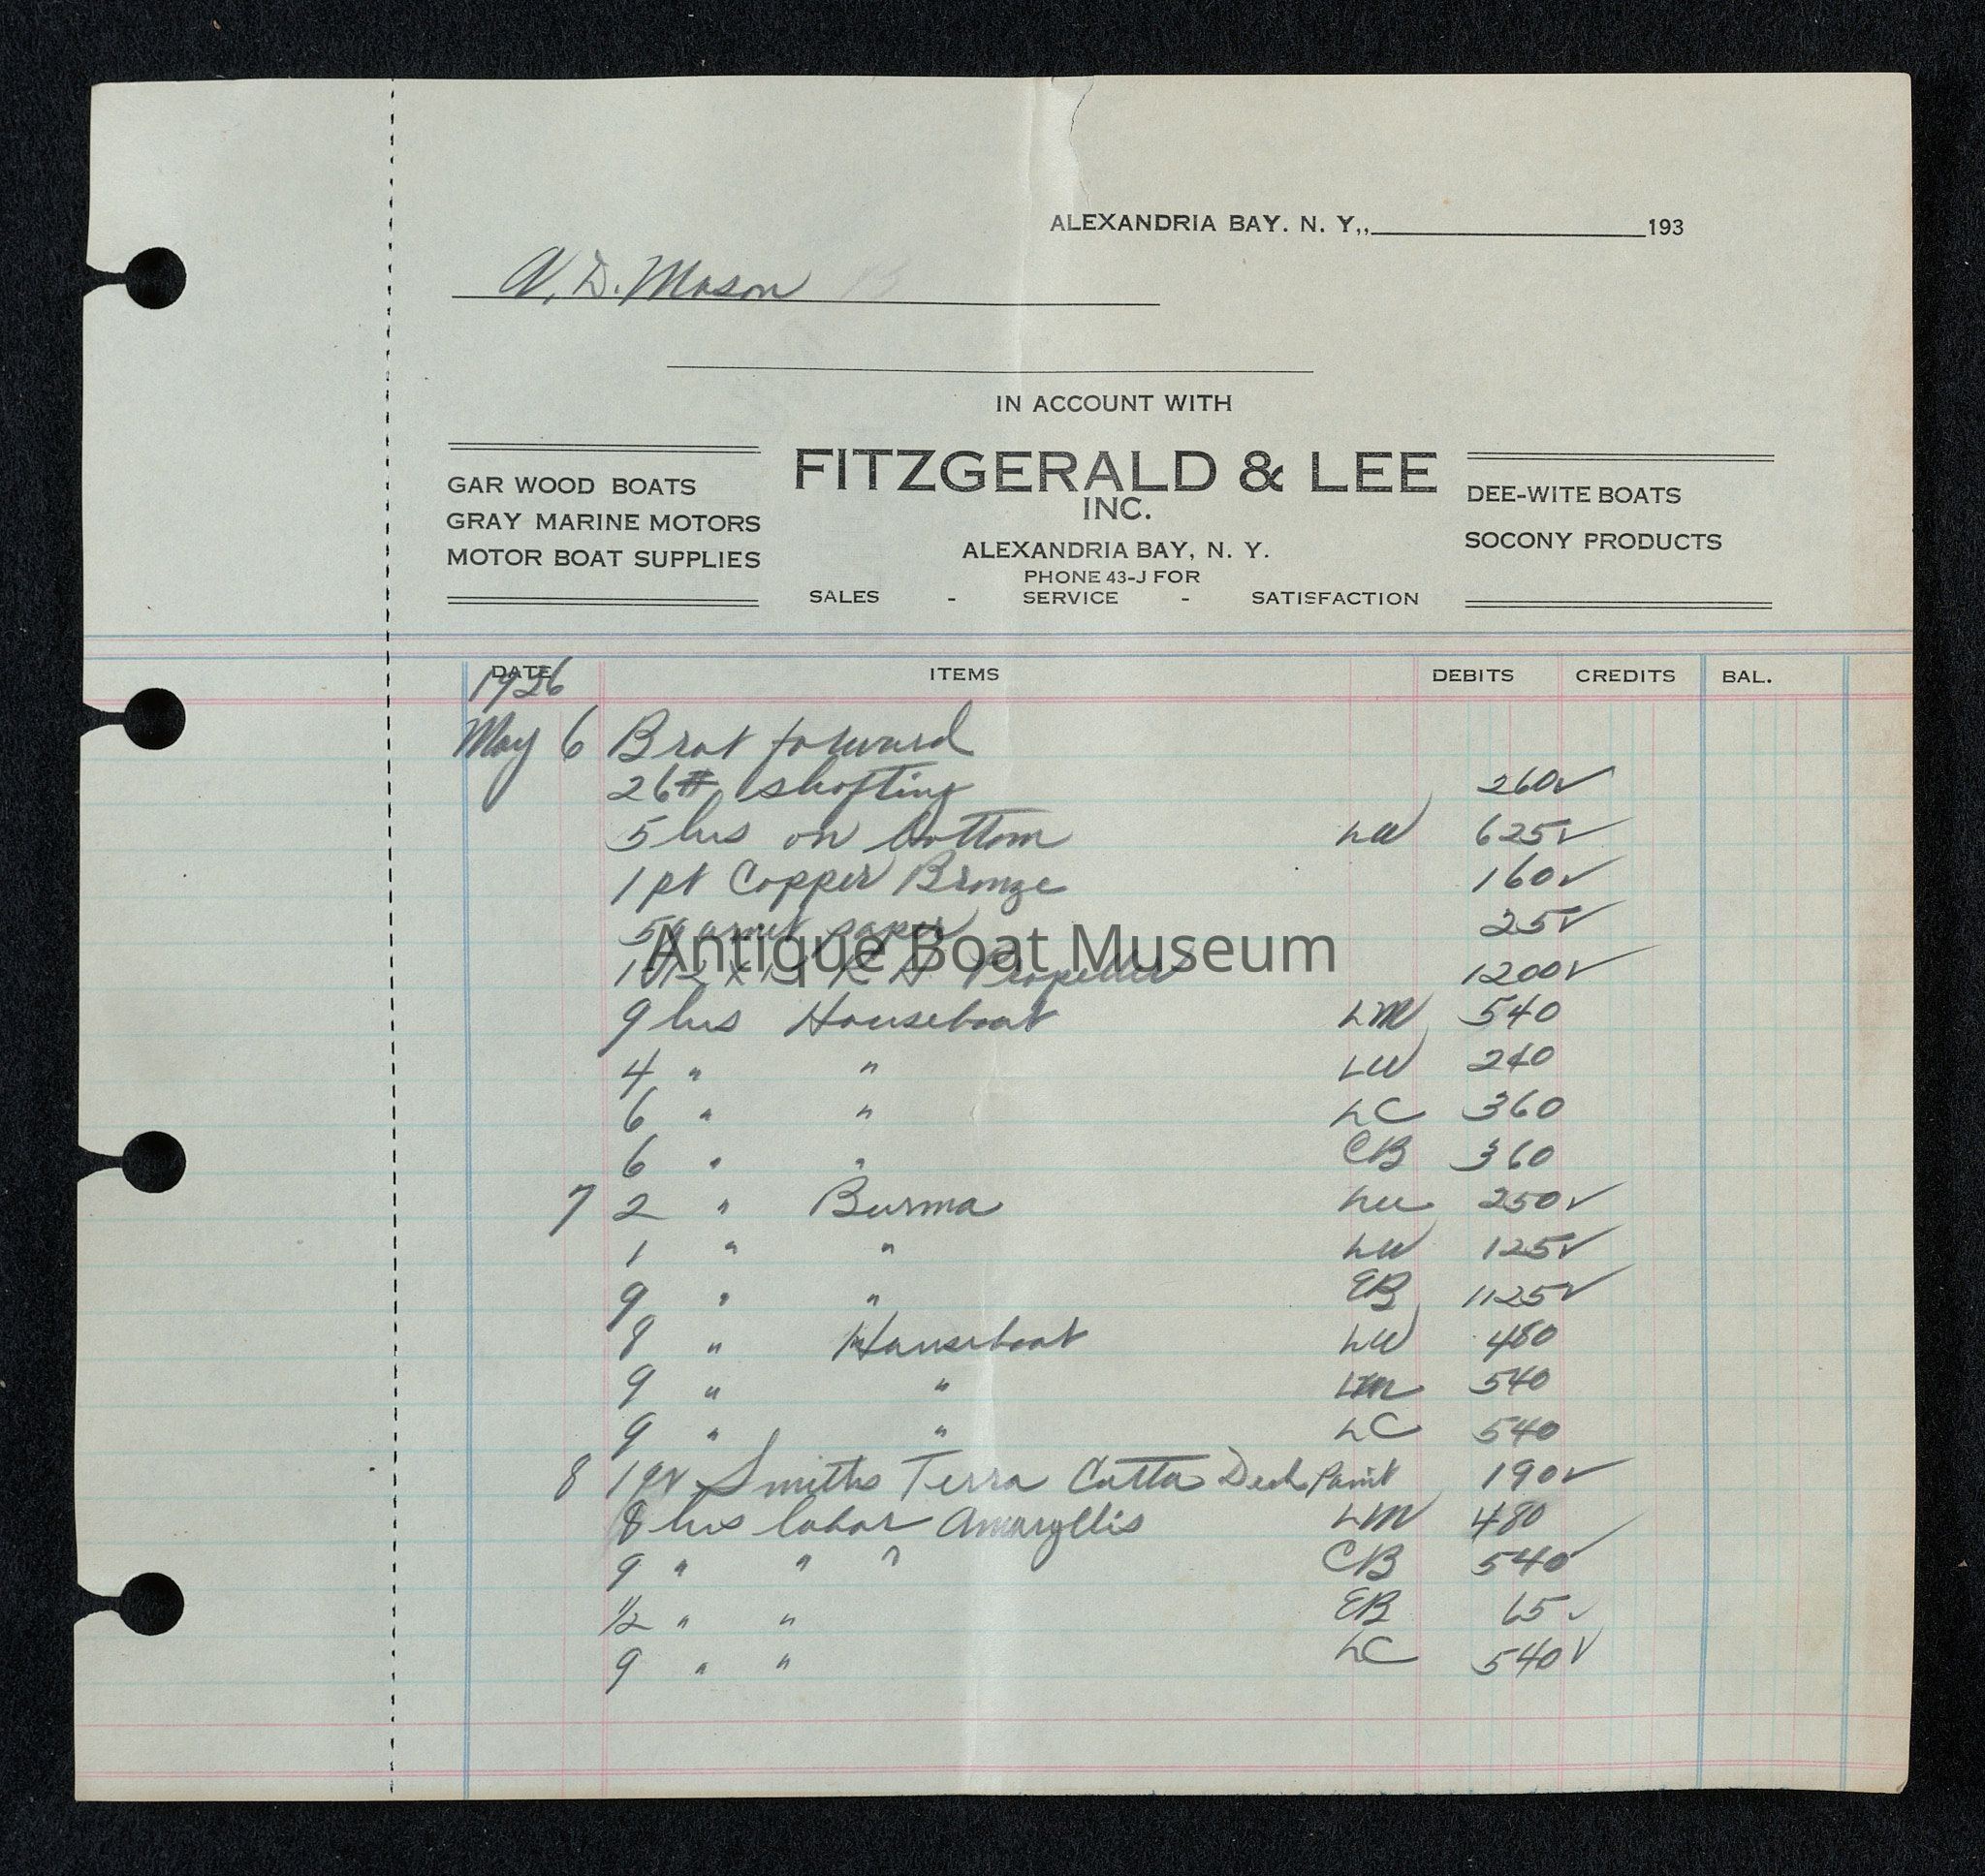 ALEXANDRIA BAY. N. Y.,, 193
V. D. Mason
IN ACCOUNT WITH
GAR WOOD BOATS
GRAY MARINE MOTORS
MOTOR BOAT SUPPLIES
FITZGERALD & LEE
INC.
ALEXANDRIA BAY, N. Y.
PHONE 43-J FOR
SALES - SERVICE - SATISFACTION
DEE-WITE BOATS
SOCONY PRODUCTS
DATE ITEMS DEBITS CREDITS BAL.
1926
May 6 Brot forward
26# shafting 260✓
5 hrs on bottom LW 625✓
1 pt Copper Bronze 160✓
5 garnet paper 25✓
Antique Boat Museum
1 12 x R H Propeller 1200✓
9 hrs Houseboat LM 540
4 " " LW 240
6 " " LC 360
6 " " CB 360
7 2 " Burma 250✓
1 " " LW 125✓
9 " " EB 1125✓
8 " Houseboat LW 480
9 " " LM 540
9 " " LC 540
8 1 qt Smiths Terra Cotta Deck Paint 190✓
8 hrs labor Amaryllis LM 480
9 " " " CB 540✓
1/2 " " EB 65✓
9 " " LC 540✓